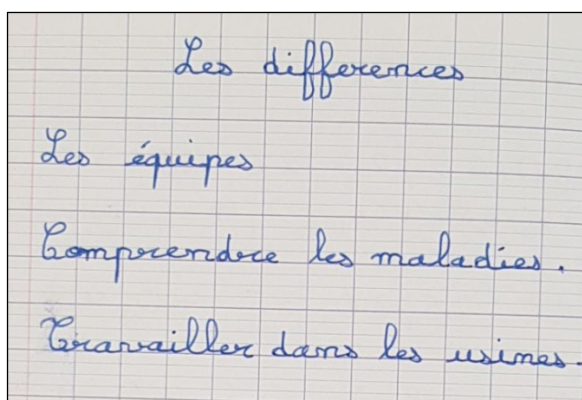 Les differences
Les équipes
Comprendre les maladies.
Travailler dans les usines.